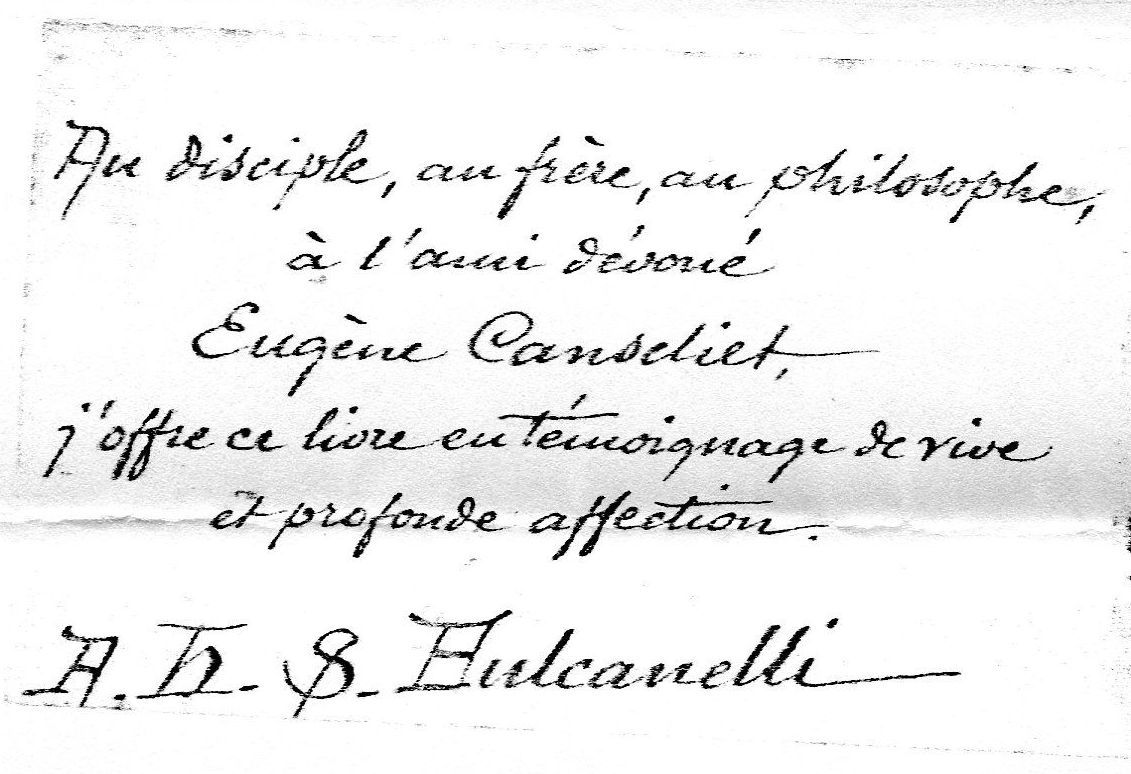 Au disciple, au frère, au philosophe,
à l'ami dévoué
Eugène Canseliet,
j'offre ce livre en témoignage de vive
et profonde affection.
A. H. S. Fulcanelli